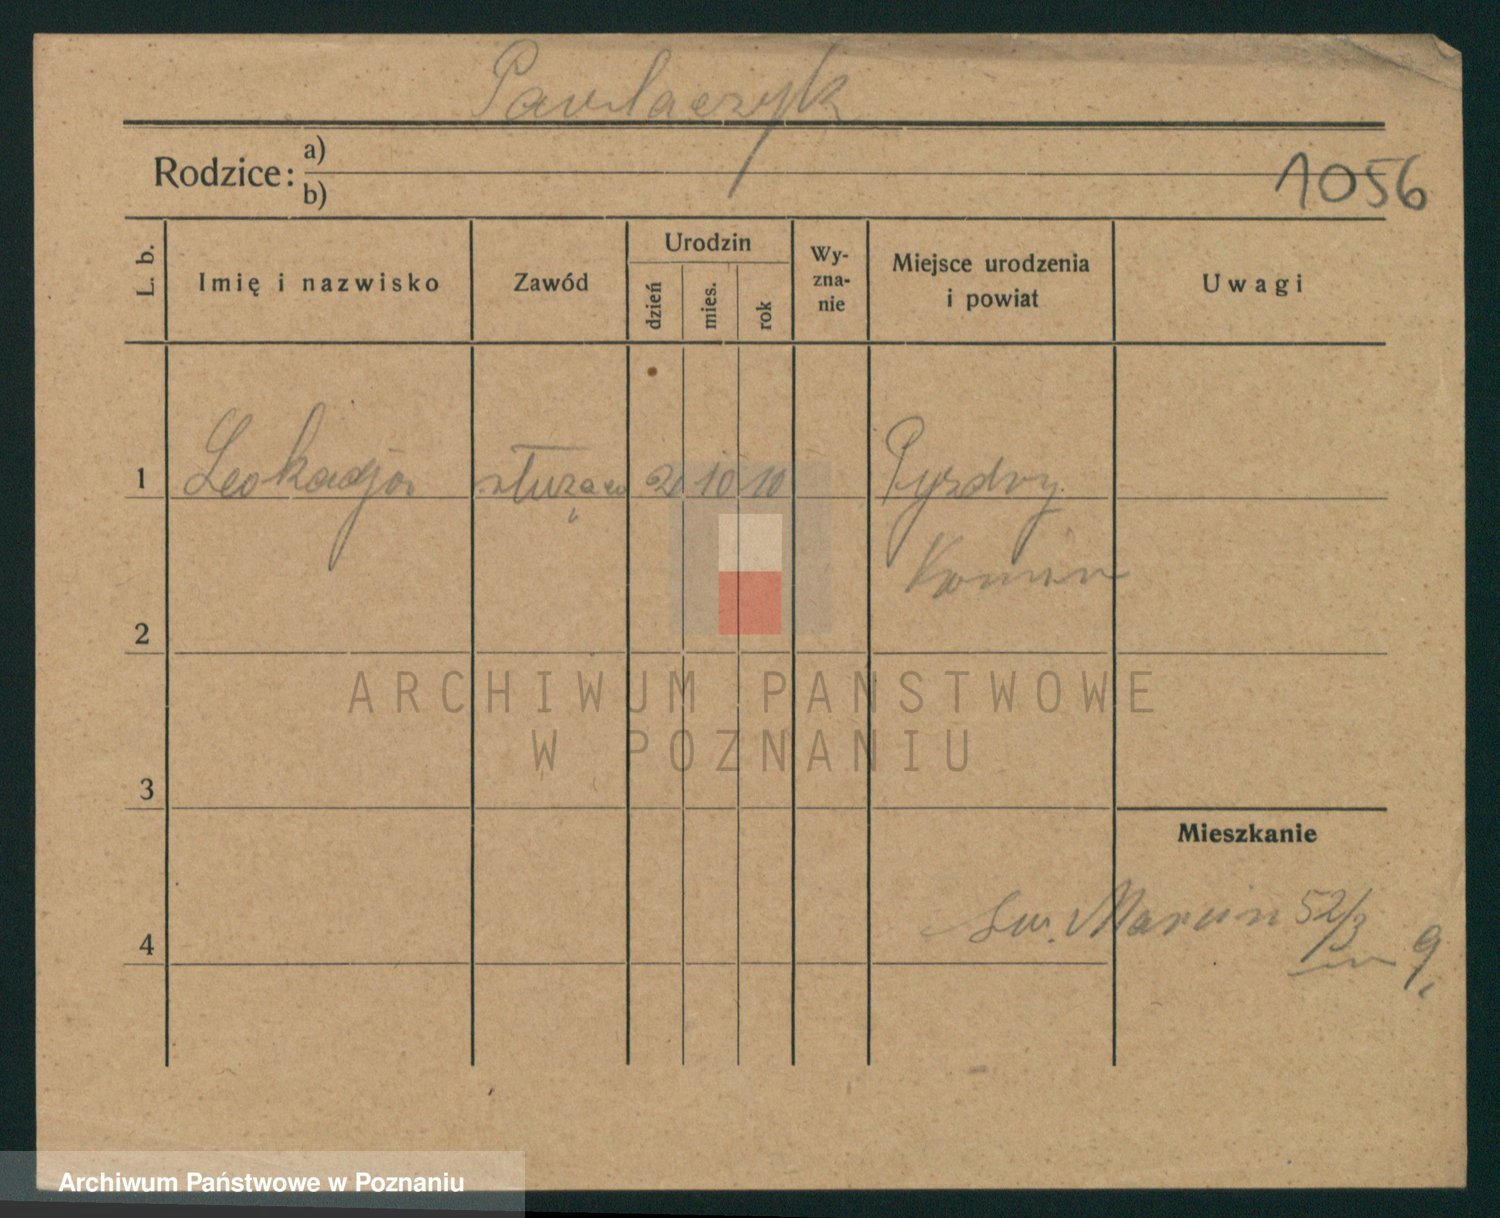 Pawlaczyk
Rodzice: a)
b)
1056
L. b.
Imię i nazwisko
Zawód
Urodzin
dzień
mies.
rok
Wy-
zna-
nie
Miejsce urodzenia
i powiat
Uwagi
1 Leokadja służąca 2 10 10 Pyzdry
Konin
2
3
Mieszkanie
4 Św. Marcin 52/3
9
ARCHIWUM PAŃSTWOWE
W POZNANIU
Archiwum Państwowe w Poznaniu